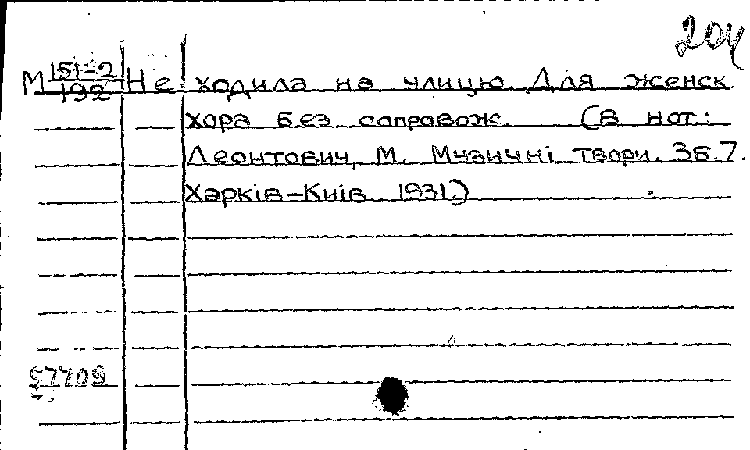 204
М 151-2/192 Не ходила на улицу. Для женск.
хора без сопровож. (В нот.:
Леонтович, М. Музичні твори. Зб.7.
Харкiв-Київ. 1931.)
57709